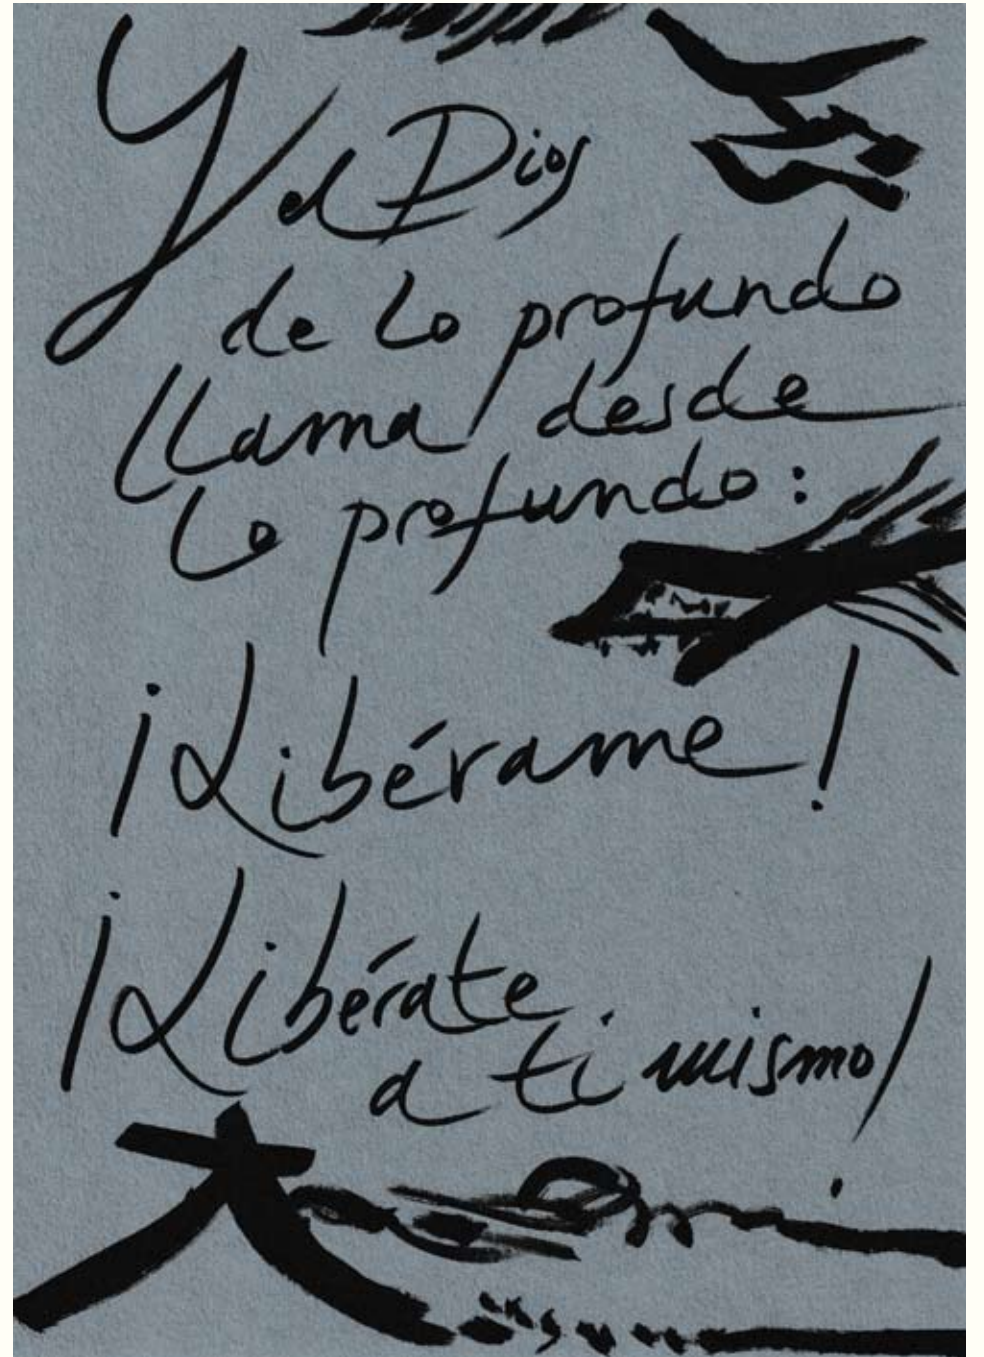 Y el Dios
de lo profundo
llama desde
lo profundo:
¡Libérame!
¡Libérate
a ti mismo!